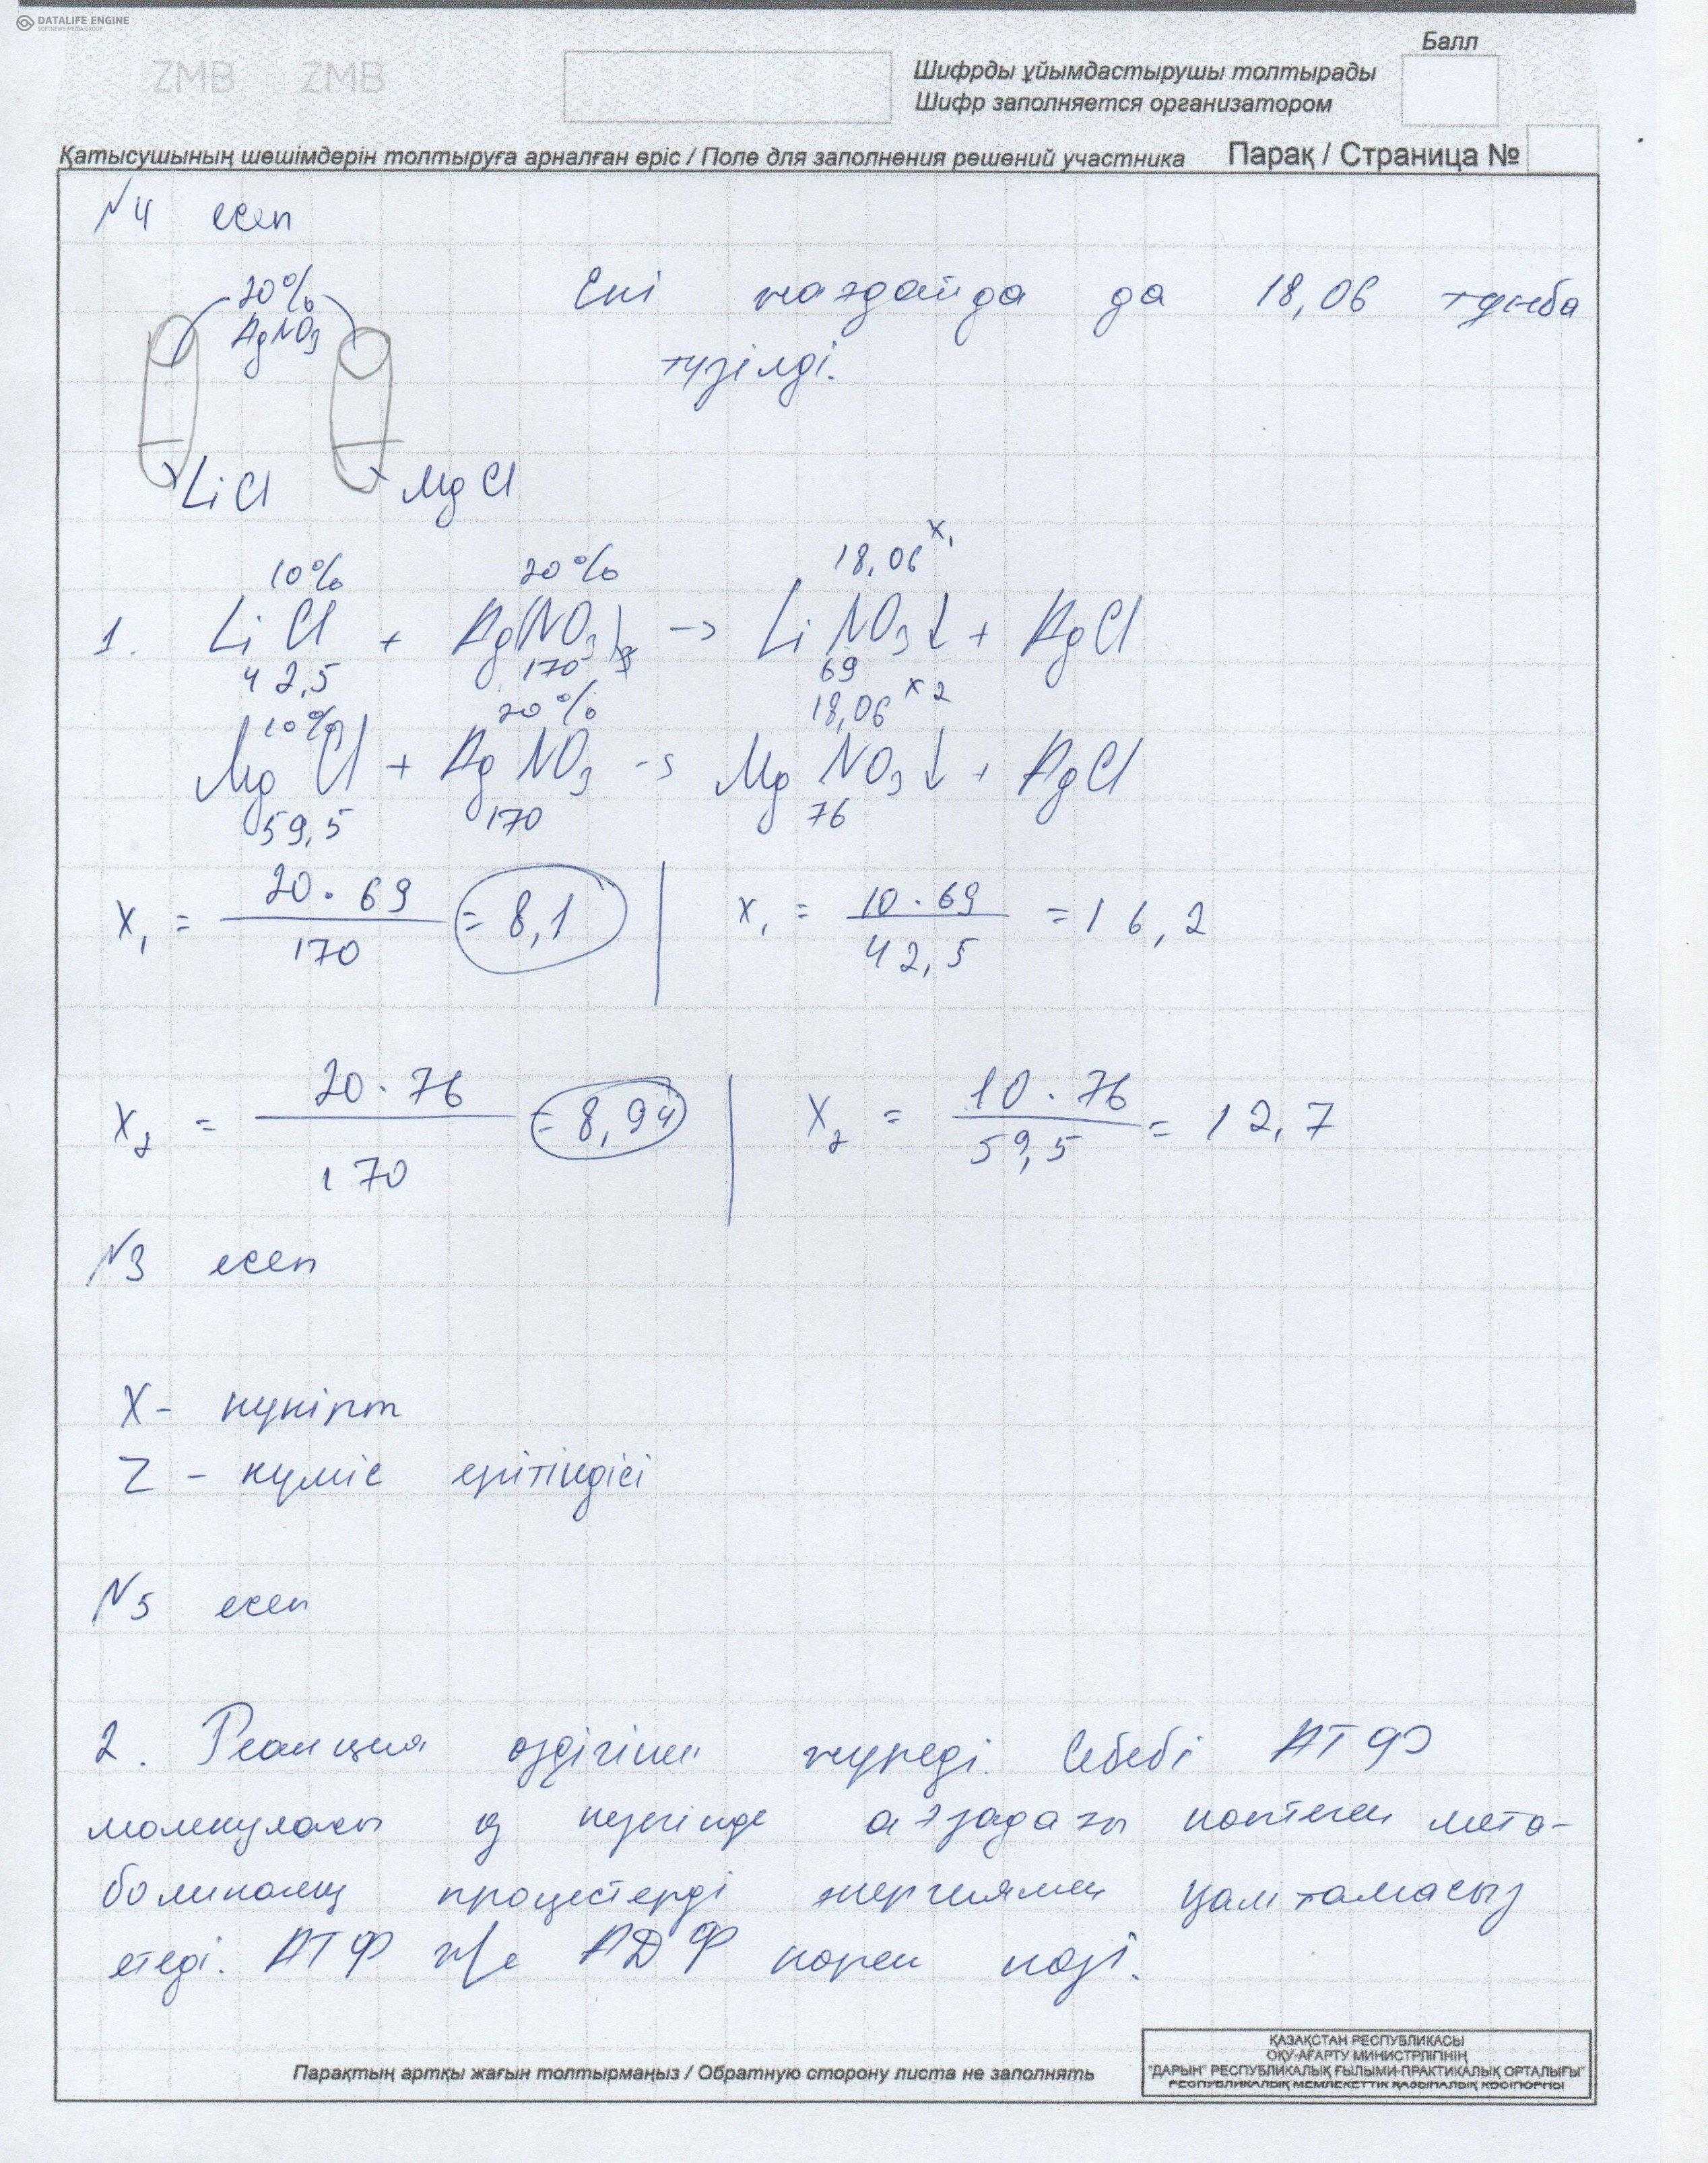 DATALIFE ENGINE
SOFTNEWS MEDIA GROUP
ZMB ZMB
Балл
Шифрды ұйымдастырушы толтырады
Шифр заполняется организатором
Қатысушының шешімдерін толтыруға арналған өріс / Поле для заполнения решений участника Парақ / Страница №
№4 есеп
20%
AgNO3
Екі жағдайда да 18,06 тұнба
түзілді.
LiCl MgCl
10% 20% 18,06 x1
1. LiCl + Ag(NO3) → LiNO3↓ + AgCl
42,5 170 69
10% 20% 18,06 x2
MgCl + AgNO3 → MgNO3↓ + AgCl
59,5 170 76
x1 = 20·69/170 = 8,1 | x1 = 10·69/42,5 = 16,2
x2 = 20·76/170 = 8,94 | x2 = 10·76/59,5 = 12,7
№3 есеп
X - күкірт
Z - күміс ерітіндісі
№5 есеп
2. Реакция өздігінен жүреді. Себебі АТФ
молекуласы өз кезегінде ағзадағы көптеген мета-
боликалық процестерді энергиямен қамтамасыз
етеді. АТФ ж/е АДФ көрен көзі.
Парақтың артқы жағын толтырмаңыз / Обратную сторону листа не заполнять
ҚАЗАҚСТАН РЕСПУБЛИКАСЫ
ОҚУ-АҒАРТУ МИНИСТРЛІГІНІҢ
"ДАРЫН" РЕСПУБЛИКАЛЫҚ ҒЫЛЫМИ-ПРАКТИКАЛЫҚ ОРТАЛЫҒЫ"
РЕСПУБЛИКАЛЫҚ МЕМЛЕКЕТТІК ҚАЗЫНАЛЫҚ КӘСІПОРНЫ